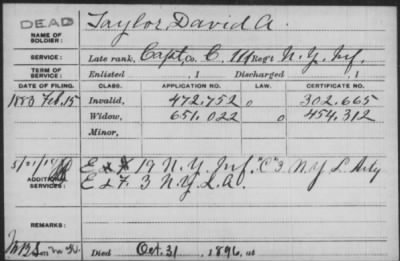 DEAD
NAME OF SOLDIER: Taylor, David A.
SERVICE: Late rank, Capt, Co. C, Regt N.Y. Inf.
TERM OF SERVICE: Enlisted , 1 Discharged , 1
DATE OF FILING. CLASS. APPLICATION NO. LAW. CERTIFICATE NO.
1883 Feb. 15 Invalid, 472.752 0 302.665
Widow, 651.022 0 454,312
Minor,
E 19 N.Y. Inf. "C" 3 N.Y. L. Arty
ADDITIONAL SERVICES: E & F. 3 N.Y.L.A.
REMARKS:
Died Oct. 31, 1896, at